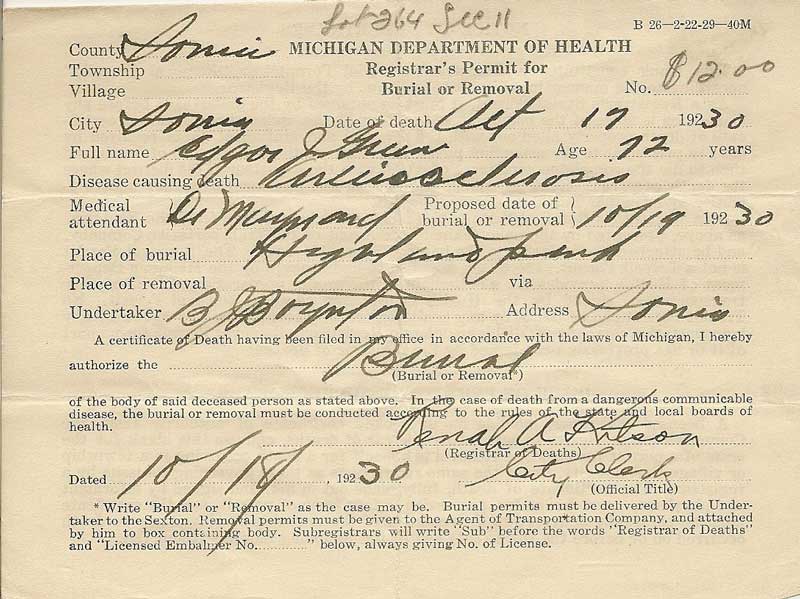 Lot 264 Sec 11
B 26—2-22-29—40M
County Ionia MICHIGAN DEPARTMENT OF HEALTH
Township Registrar's Permit for
Village Burial or Removal No. $12.00
City Ionia Date of death Oct 17 1930
Full name Edgar J Green Age 72 years
Disease causing death Arteriosclerosis
Medical attendant Dr Maynard Proposed date of burial or removal 10/19 1930
Place of burial Highland park
Place of removal via
Undertaker B J Boynton Address Ionia
A certificate of Death having been filed in my office in accordance with the laws of Michigan, I hereby
authorize the Burial
(Burial or Removal*)
of the body of said deceased person as stated above. In the case of death from a dangerous communicable
disease, the burial or removal must be conducted according to the rules of the state and local boards of
health.
A Kitson
(Registrar of Deaths)
Dated 10/18, 19230 City Clerk
(Official Title)
* Write "Burial" or "Removal" as the case may be. Burial permits must be delivered by the Under-
taker to the Sexton. Removal permits must be given to the Agent of Transportation Company, and attached
by him to box containing body. Subregistrars will write "Sub" before the words "Registrar of Deaths"
and "Licensed Embalmer No. " below, always giving No. of License.